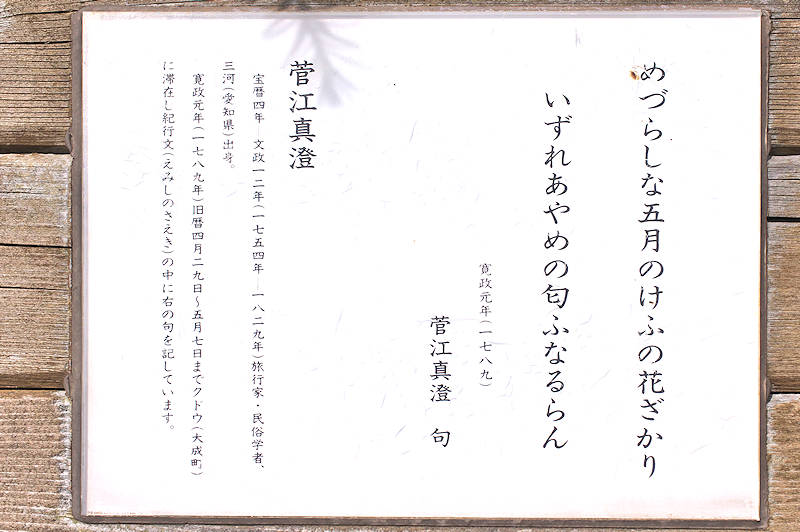 めづらしな五月のけふの花ざかり
いずれあやめの匂ふなるらん
寛政元年(一七八九)
菅江真澄 句
菅江真澄
宝暦四年―文政一二年(一七五四年―一八二九年)旅行家・民俗学者、
三河(愛知県)出身。
寛政元年(一七八九年)旧暦四月二九日~五月七日までクドウ(大成町)
に滞在し紀行文(えみしのさえき)の中に右の句を記しています。